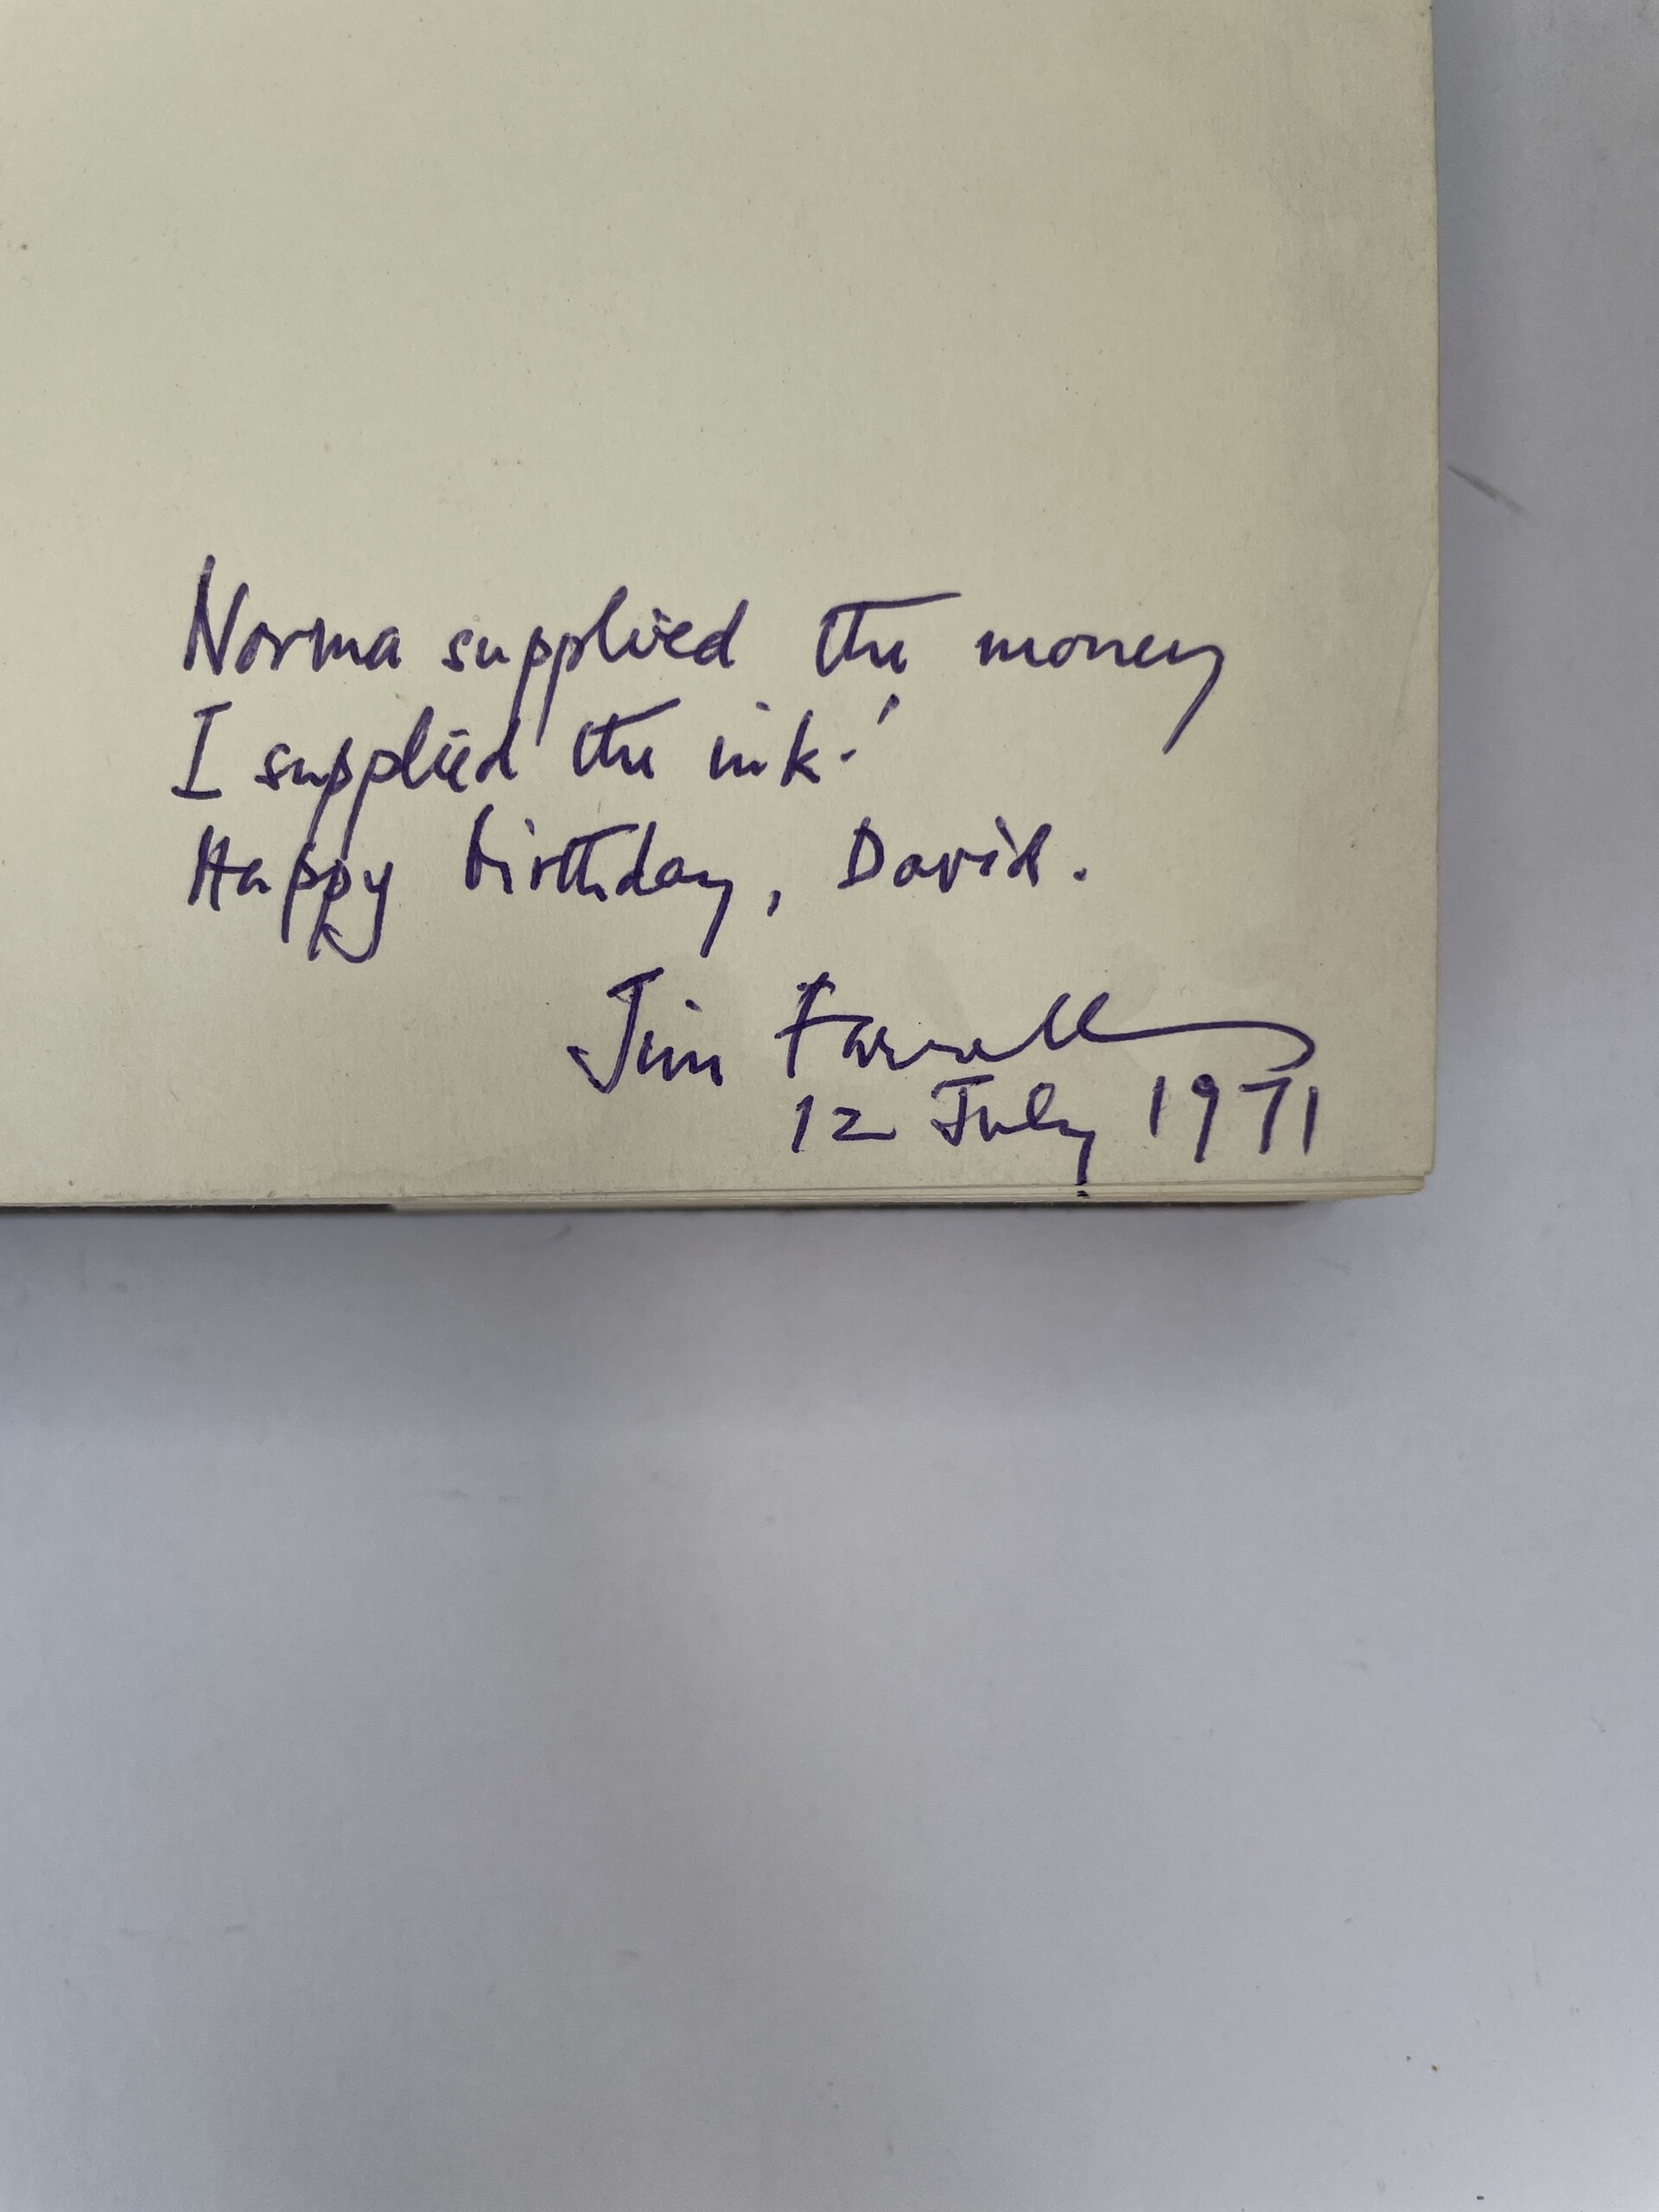 Norma supplied the money
I supplied the ink!
Happy birthday, David.
Jim Farrell
12 July 1971